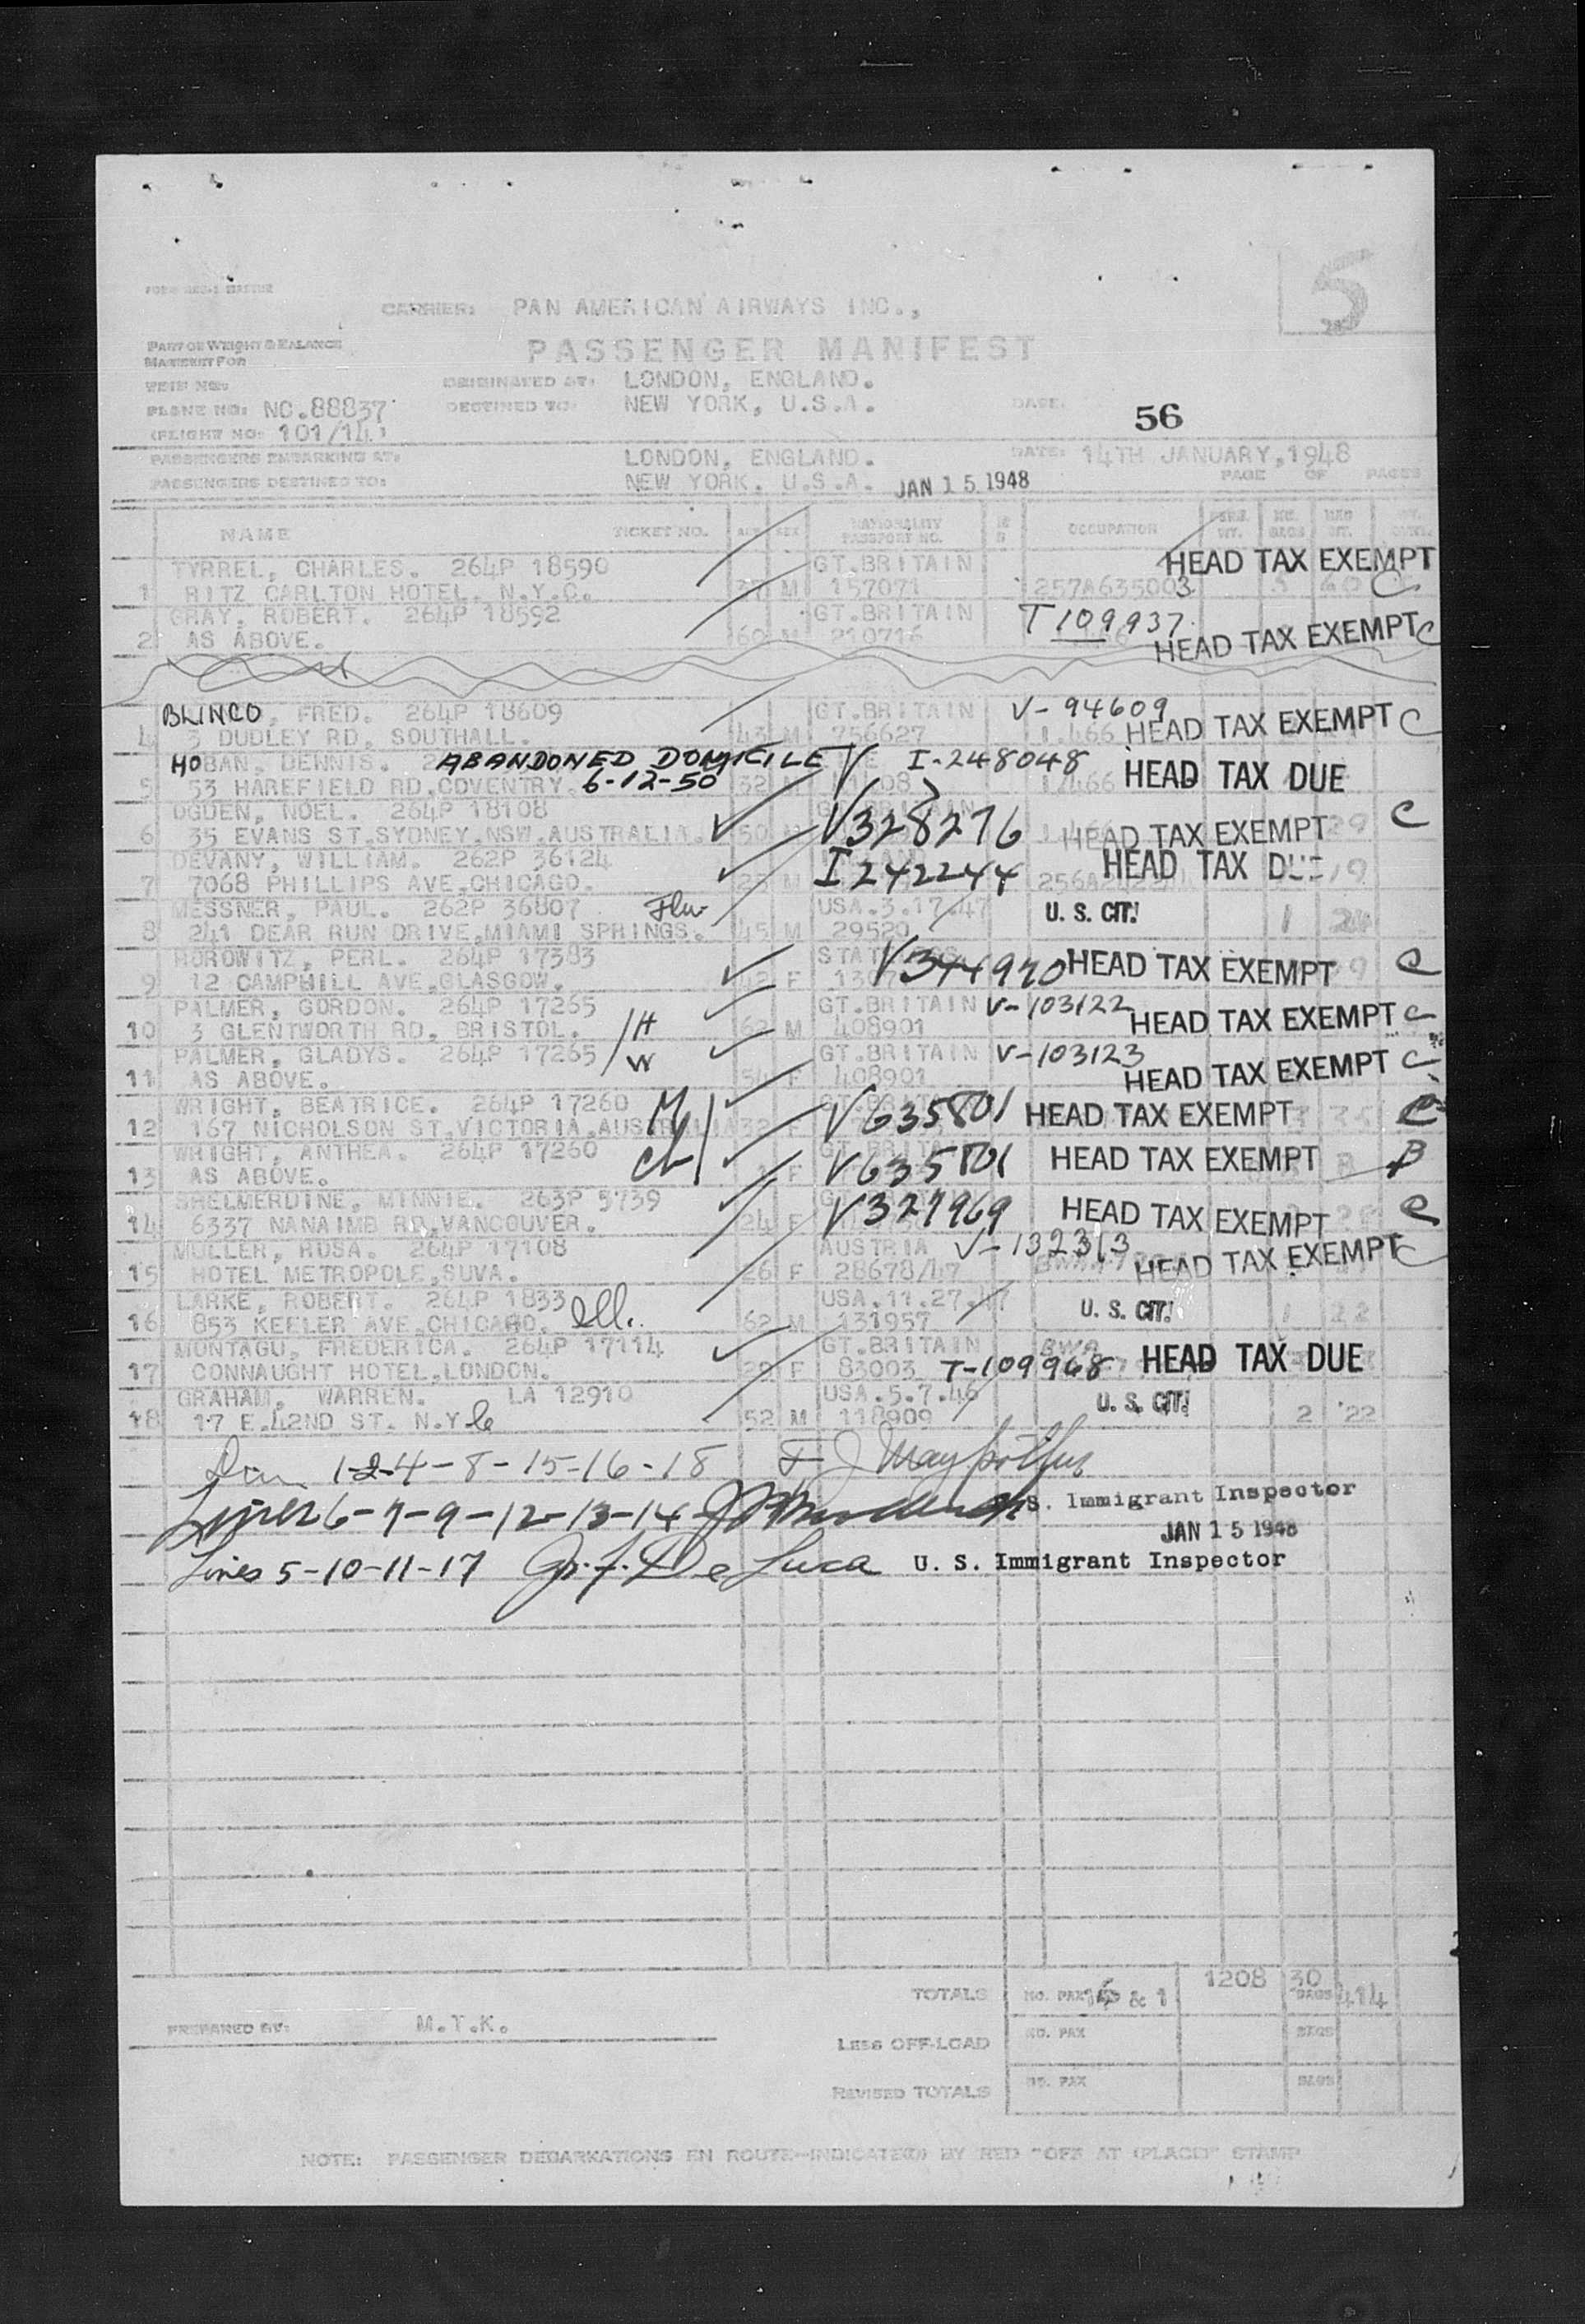 5
CARRIER: PAN AMERICAN AIRWAYS INC.,
PART OF WEIGHT & BALANCE
MANIFEST FOR
PASSENGER MANIFEST
TRIP NO:
ORIGINATED AT: LONDON, ENGLAND.
PLANE NO: NC.88837
DESTINED TO: NEW YORK, U.S.A.
DATE:
56
(FLIGHT NO: 101/14)
PASSENGERS EMBARKING AT: LONDON, ENGLAND. DATE: 14TH JANUARY, 1948
PASSENGERS DESTINED TO: NEW YORK. U.S.A. JAN 15 1948 PAGE OF PAGES
NAME TICKET NO. AGE SEX NATIONALITY PASSPORT NO. OCCUPATION
TYRREL, CHARLES. 264P 18590 GT.BRITAIN HEAD TAX EXEMPT
1 RITZ CARLTON HOTEL. N.Y.C. M 157071 257A635003 C
GRAY, ROBERT. 264P 18592 GT.BRITAIN T109937
2 AS ABOVE. 60 M 210716 HEAD TAX EXEMPT C
BLINCO, FRED. 264P 18609 GT.BRITAIN V-94609
4 3 DUDLEY RD, SOUTHALL. 43 M 756627 HEAD TAX EXEMPT C
HOBAN, DENNIS. ABANDONED DOMICILE I-248048
5 53 HAREFIELD RD,COVENTRY. 6-12-50 32 HEAD TAX DUE
OGDEN, NOEL. 264P 18108
6 35 EVANS ST.SYDNEY.NSW.AUSTRALIA. 50 V328276 HEAD TAX EXEMPT 29 C
DEVANY, WILLIAM. 262P 36124
7 7068 PHILLIPS AVE,CHICAGO. M I242244 HEAD TAX DUE 19
MESSNER, PAUL. 262P 36807 USA.3.17.47 U. S. CIT.
8 241 DEAR RUN DRIVE,MIAMI SPRINGS. 45 M 29520 1 24
HOROWITZ, PERL. 264P 17383
9 12 CAMPHILL AVE,GLASGOW. 42 F V344970 HEAD TAX EXEMPT C
PALMER, GORDON. 264P 17265 GT.BRITAIN V-103122
10 3 GLENTWORTH RD, BRISTOL. H 62 M 408901 HEAD TAX EXEMPT C
PALMER, GLADYS. 264P 17265 GT.BRITAIN V-103123
11 AS ABOVE. W 54 F 408901 HEAD TAX EXEMPT C
WRIGHT, BEATRICE. 264P 17260
12 167 NICHOLSON ST,VICTORIA,AUSTRALIA 32 F V635801 HEAD TAX EXEMPT C
WRIGHT, ANTHEA. 264P 17260
13 AS ABOVE. ch F V635801 HEAD TAX EXEMPT B
SHELMERDINE, MINNIE. 263P 5739
14 6337 NANAIMB RD,VANCOUVER. 24 F V327969 HEAD TAX EXEMPT C
MULLER, ROSA. 264P 17108 AUSTRIA V-132313
15 HOTEL METROPOLE,SUVA. 26 F 28678/47 HEAD TAX EXEMPT C
LARKE, ROBERT. 264P 1833 USA.11.27.47
16 853 KEELER AVE,CHICAGO. Ill. 62 M 131957 U. S. CIT. 1 22
MONTAGU, FREDERICA. 264P 17114 GT.BRITAIN BWA
17 CONNAUGHT HOTEL,LONDON. F 83003 T-109968 HEAD TAX DUE
GRAHAM, WARREN. LA 12910 USA.5.7.46
18 17 E.42ND ST. N.Y.C 52 M 118909 U. S. CIT. 2 22
1-2-4-8-15-16-18
Lines 6-7-9-12-13-14 U.S. Immigrant Inspector
JAN 15 1948
Lines 5-10-11-17 De Luca U. S. Immigrant Inspector
TOTALS NO. PAX & 1 1208 30 BAGS 414
PREPARED BY: M.T.K.
LESS OFF-LOAD NO. PAX BAGS
REVISED TOTALS NO. PAX BAGS
NOTE: PASSENGER DEBARKATIONS EN ROUTE-INDICATE(D) BY RED "OFF AT (PLACE)" STAMP